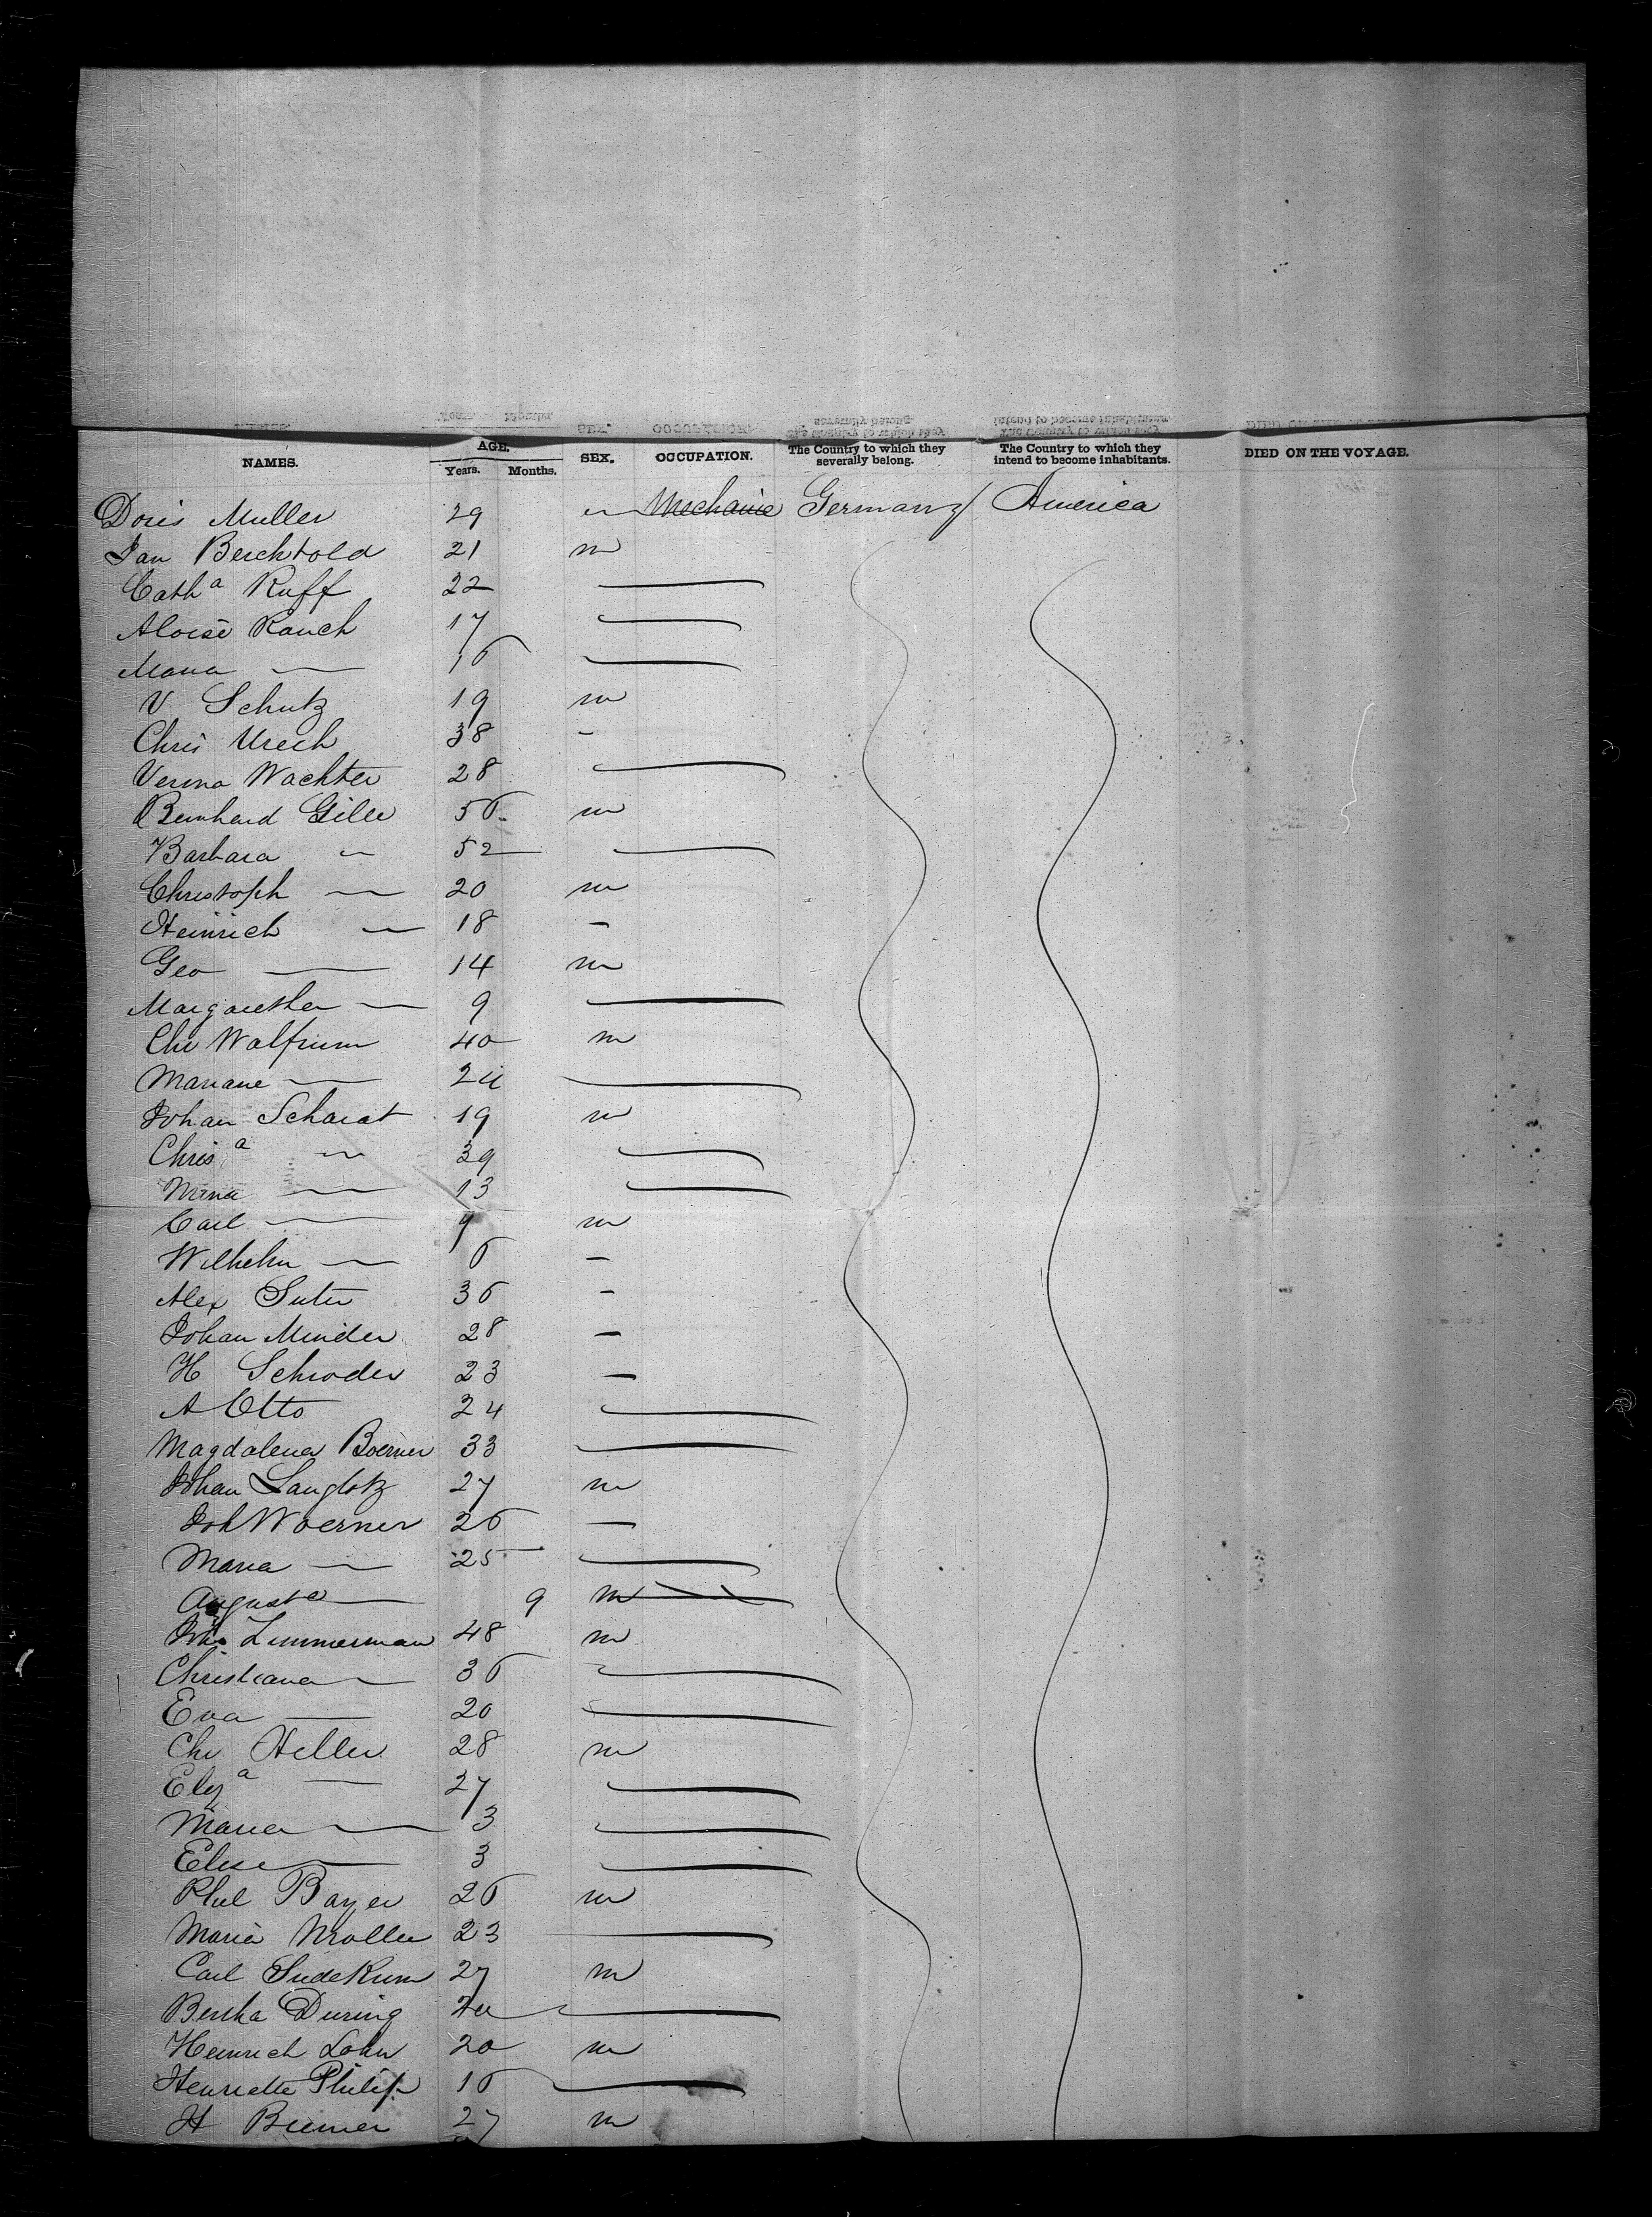 NAMES. AGE. Years. Months. SEX. OCCUPATION. The Country to which they severally belong. The Country to which they intend to become inhabitants. DIED ON THE VOYAGE.
Doris Muller 29 ~ Mechanic Germany America
Jan Berchtold 21 m
Cath a Ruff 22 —
Aloise Rauch 17 —
Maria — 16 —
V Schutz 19 m
Chris Urech 38 -
Verena Wachter 28 —
Bernhard Giller 56 m
Barbara — 52 —
Christoph — 20 m
Heinrich — 18 —
Geo — 14 m
Margaretha — 9 —
Chr Walfrum 40 m
Mariane — 24 —
Johan Scharat 19 m
Chris a — 39 —
Mina — 13 —
Carl — 9 m
Wilhelm — 6 —
Alex Suter 36 -
Johan Minder 28 —
H Schroder 23 —
A Otto 24 —
Magdalena Boerner 33 —
Johan Langlotz 27 m
Joh Woerner 26 —
Maria — 25 —
August — 9 m
Joh Zimmerman 48 m
Christiana — 36 —
Eva — 20 —
Chr Heller 28 m
Elz a — 27 —
Maria — 3 —
Elise — 3 —
Phil Bayer 26 m
Maria Moller 23 —
Carl Sudekum 27 m
Bertha During —
Heinrich Lohn 20 m
Henriette Philip 16 —
H Biemer 27 m